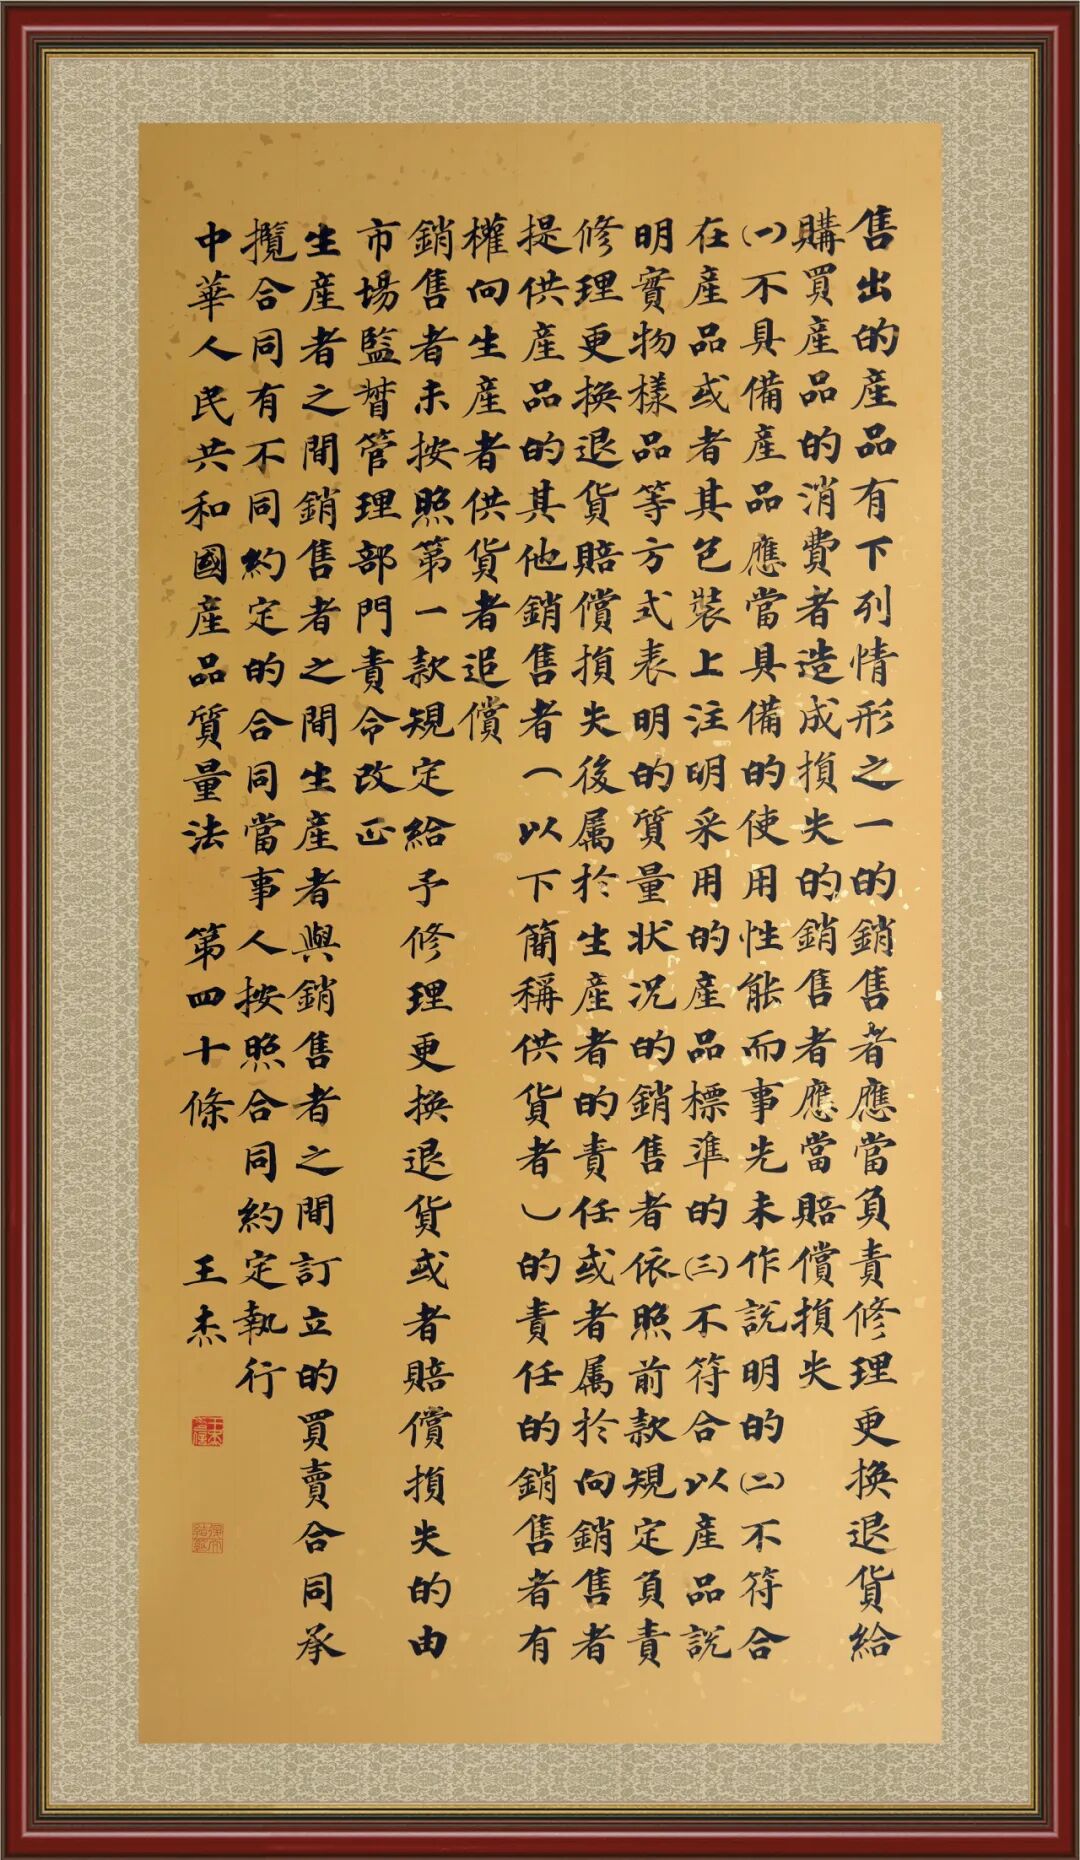 售出的產品有下列情形之一的銷售者應當負責修理更換退貨給
購買產品的消費者造成損失的銷售者應當賠償損失
(一)不具備產品應當具備的使用性能而事先未作説明的(二)不符合
在產品或者其包裝上注明采用的產品標準的(三)不符合以產品説
明實物樣品等方式表明的質量狀况的銷售者依照前款規定負責
修理更換退貨賠償損失後屬於生產者的責任或者屬於向銷售者
提供產品的其他銷售者(以下簡稱供貨者)的責任的銷售者有
權向生產者供貨者追償
銷售者未按照第一款規定給予修理更換退貨或者賠償損失的由
市場監督管理部門責令改正
生產者之間銷售者之間生產者與銷售者之間訂立的買賣合同承
攬合同有不同約定的合同當事人按照合同約定執行
中華人民共和國產品質量法 第四十條 王杰